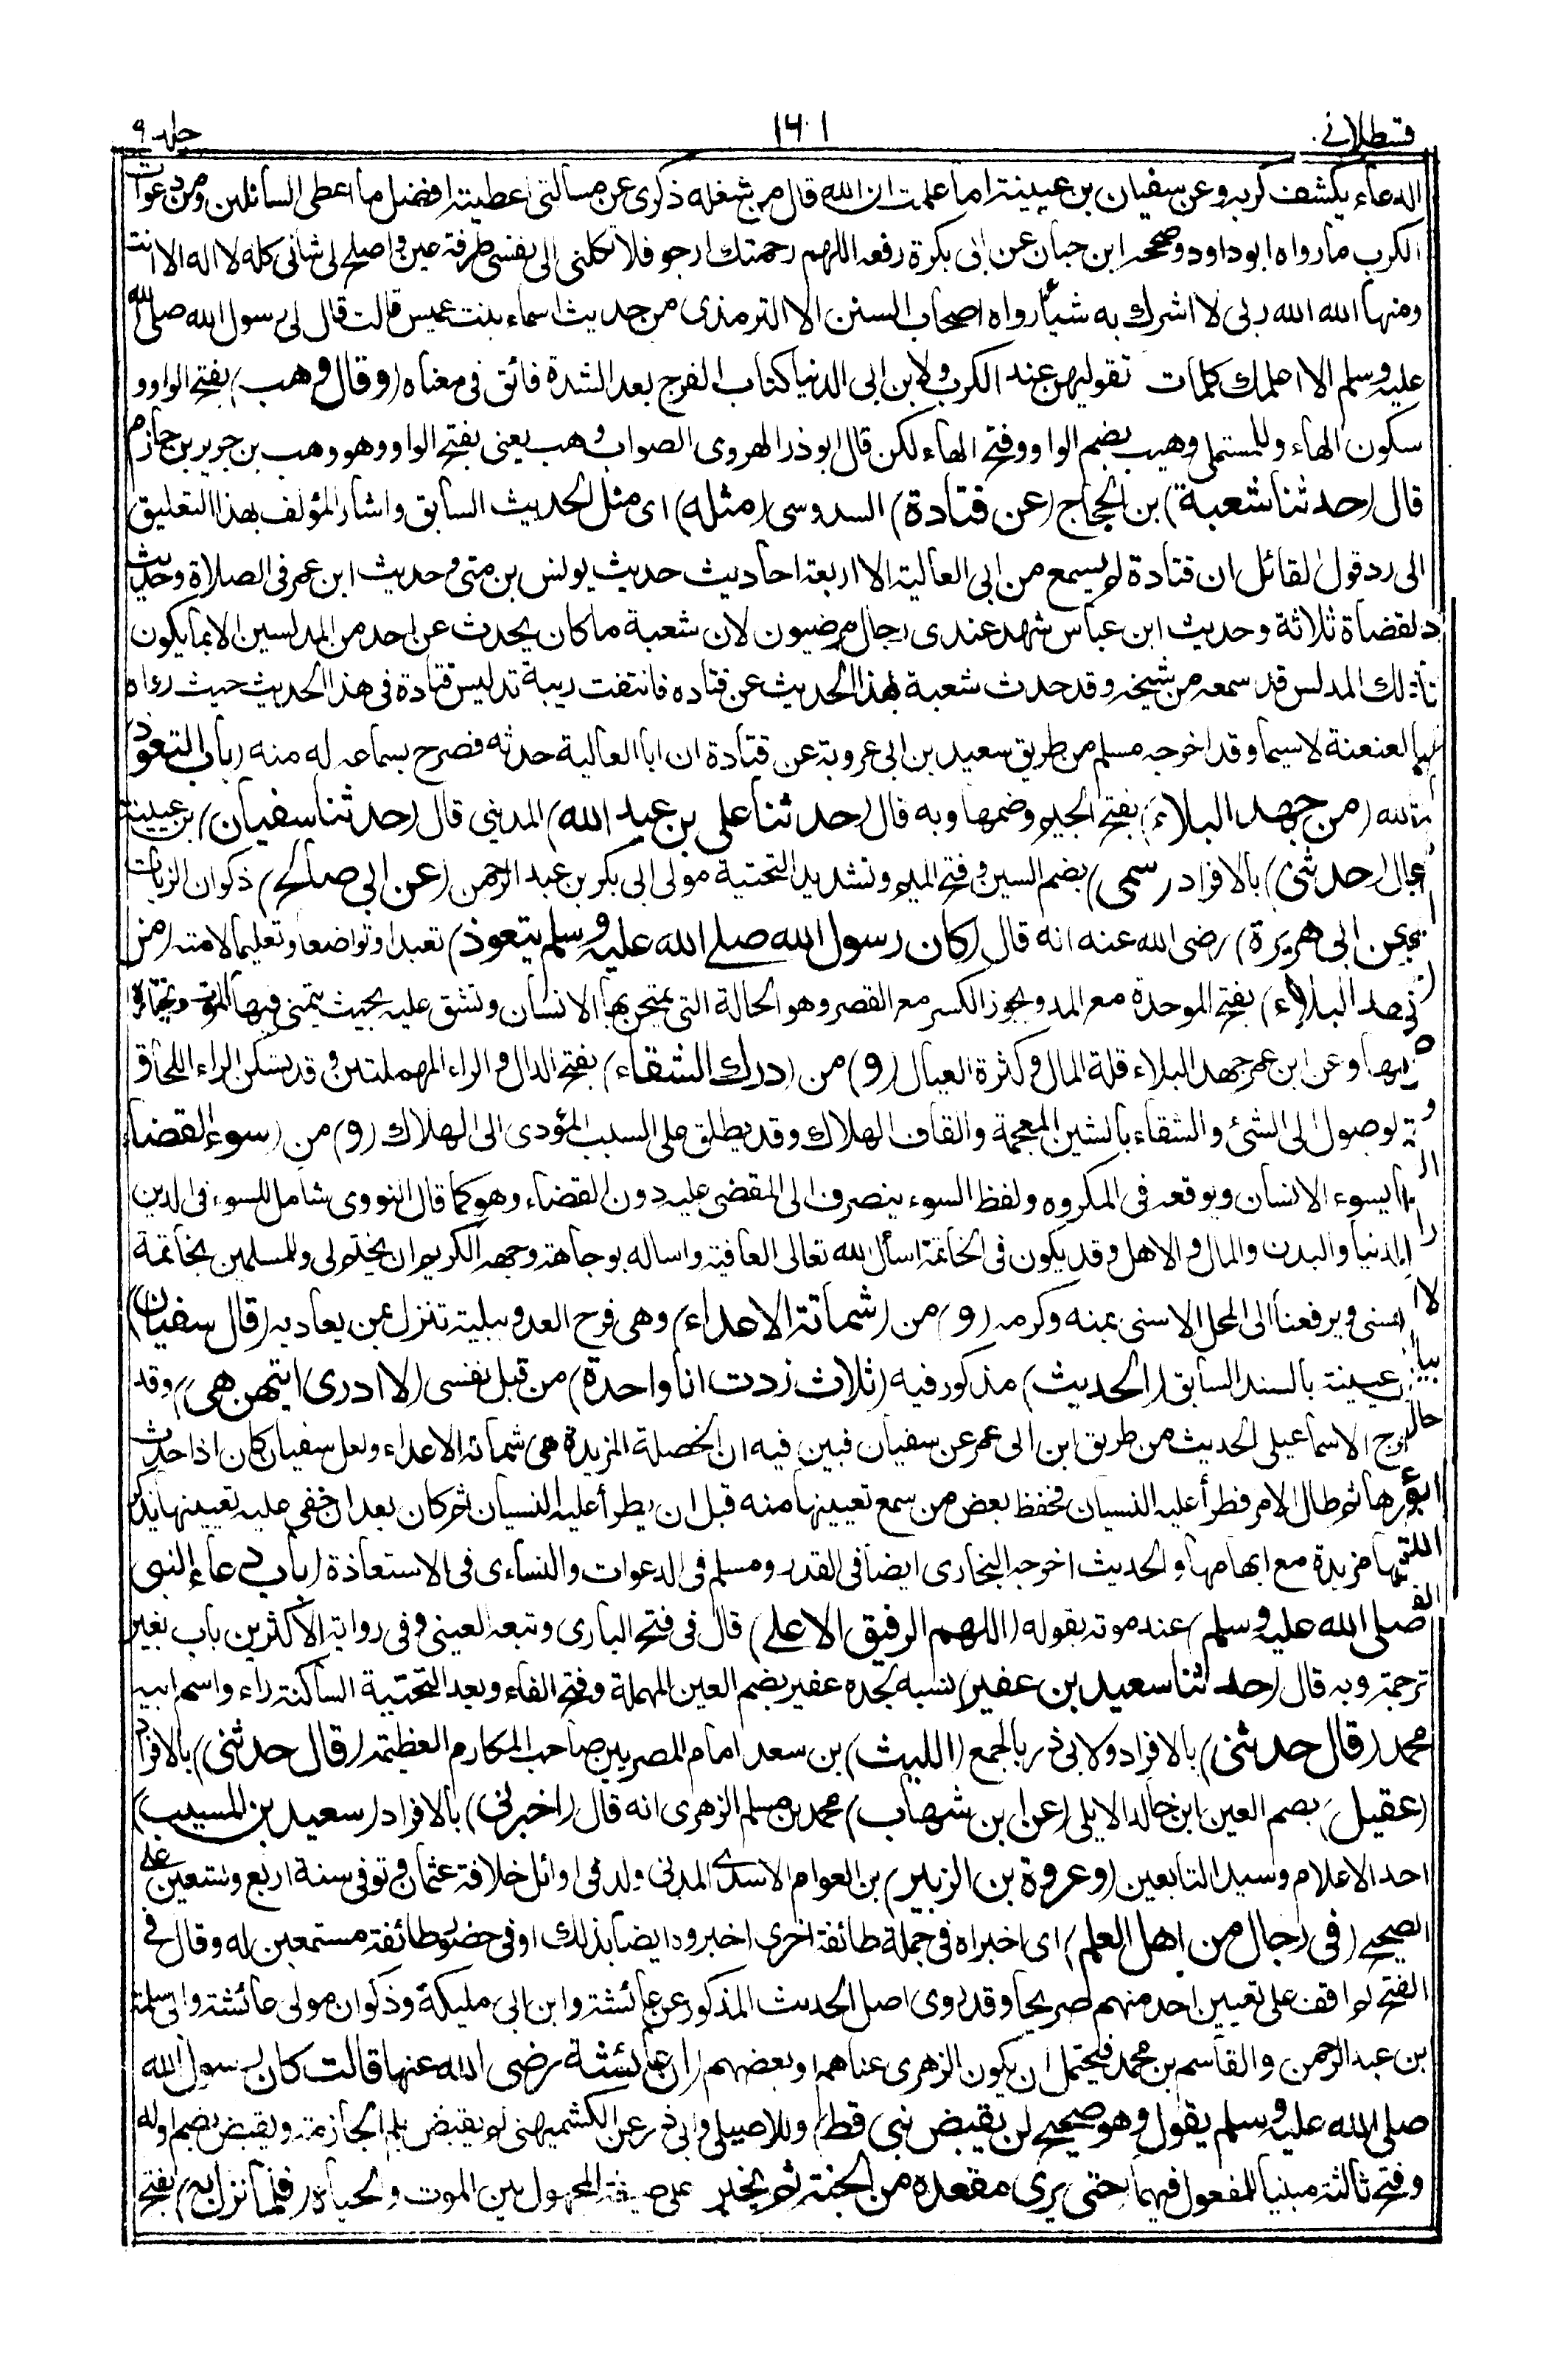 قسطلانی ١٦١ جلد ٩
الدعاء يكشف كربه وعن سفيان بن عيينة اما علمت ان الله قال من شغله ذكرى عن مسألتى اعطيته افضل ما اعطى السائلين ومن دعوات
الكرب ما رواه ابو داود وصححه ابن حبان عن ابى بكرة رفعه اللهم رحمتك ارجو فلا تكلنى الى نفسى طرفة عين واصلح لى شأنى كله لا اله الا انت
ومنها الله الله ربى لا اشرك به شيأ رواه اصحاب السنن الا الترمذى من حديث اسماء بنت عميس قالت قال لى رسول الله صلى الله
عليه وسلم الا اعلمك كلمات تقوليهن عند الكرب ولابن ابى الدنيا كتاب الفرج بعد الشدة فائق فى معناه (وقال وهب) بفتح الواو و
سكون الهاء وللمستملى وهيب بضم الواو وفتح الهاء لكن قال ابو ذر الهروى الصواب وهب يعنى بفتح الواو وهو وهب بن جرير بن حازم
قال (حدثنا شعبة) بن الحجاج (عن قتادة) السدوسى (مثله) اى مثل الحديث السابق واشار المؤلف بهذا التعليق
الى رد قول القائل ان قتادة لم يسمع من ابى العالية الا اربعة احاديث حديث يونس بن متى وحديث ابن عمر فى الصلاة وحديث
القضاة ثلاثة وحديث ابن عباس شهد عندى رجال مرضيون لان شعبة ما كان يحدث عن احد من المدلسين الا بما يكون
ذلك المدلس قد سمعه من شيخه وقد حدث شعبة بهذا الحديث عن قتاده فانتفت ريبة تدليس قتادة فى هذا الحديث حيث رواه
بالعنعنة لاسيما وقد اخرجه مسلم من طريق سعيد بن ابى عروبة عن قتادة ان ابا العالية حدثه فصرح بسماعه له منه (باب التعوذ)
بالله (من جهد البلاء) بفتح الجيم وضمها وبه قال (حدثنا على بن عبد الله) المدينى قال (حدثنا سفيان) بن عيينة
قال (حدثنى) بالافراد (سمى) بضم السين وفتح الميم وتشديد التحتية مولى ابى بكر بن عبد الرحمن (عن ابى صالح) ذكوان الزيات
(عن ابى هريرة) رضى الله عنه انه قال (كان رسول الله صلى الله عليه وسلم يتعوذ) تعبدا وتواضعا وتعليما لامته (من
جهد البلاء) بفتح الموحدة مع المد ويجوز الكسر مع القصر وهو الحالة التى يمتحن بها الانسان وتشق عليه بحيث يتمنى فيها الموت ويختاره
عليها وعن ابن عمر جهد البلاء قلة المال وكثرة العيال (و) من (درك الشقاء) بفتح الدال والراء المهملتين وقد تسكن الراء اللحاق
والوصول الى الشئ والشقاء بالشين المعجمة والقاف الهلاك وقد يطلق على السبب المؤدى الى الهلاك (و) من (سوء القضاء)
ما يسوء الانسان ويوقعه فى المكروه ولفظ السوء ينصرف الى المقضى عليه دون القضاء وهو كما قال النووى شامل للسوء فى الدين
والدنيا والبدن والمال والاهل وقد يكون فى الخاتمة اسأل الله تعالى العافية واساله بوجاهة وجهه الكريم ان يختم لى وللمسلمين بخاتمة
الحسنى ويرفعنا الى المحل الاسنى بمنه وكرمه (و) من (شماتة الاعداء) وهى فرح العدو ببلية تنزل بمن يعاديه (قال سفيان)
بن عيينة بالسند السابق (الحديث) مذكور فيه (ثلاث زدت انا واحدة) من قبل نفسى (لا ادرى ايتهن هى) وقد
اخرج الاسماعيلى الحديث من طريق ابن ابى عمر عن سفيان فبين فيه ان الخصلة المزيدة هى شماتة الاعداء ولعل سفيان كان اذا حدث
ميزها ثم طال الامر فطرأ عليه النسيان فحفظ بعض من سمع تعيينها منه قبل ان يطرأ عليه النسيان ثم كان بعد ان خفى عليه تعيينها يذكر
كونها مزيدة مع ابهامها والحديث اخرجه البخارى ايضا فى القدر ومسلم فى الدعوات والنساءى فى الاستعاذة (باب دعاء النبى
صلى الله عليه وسلم) عند موته بقوله (اللهم الرفيق الاعلى) قال فى فتح البارى وتبعه العينى وفى رواية الاكثرين باب بغير
ترجمة وبه قال (حدثنا سعيد بن عفير) نسبه لجده عفير بضم العين المهملة وفتح الفاء وبعد التحتية الساكنة راء واسم ابيه
محمد (قال حدثنى) بالافراد ولابى ذر بالجمع (الليث) بن سعد امام المصريين صاحب المكارم العظيمة (قال حدثنى) بالافراد
(عقيل) بضم العين ابن خالد الايلى (عن ابن شهاب) محمد بن مسلم الزهرى انه قال (اخبرنى) بالافراد (سعيد بن المسيب)
احد الاعلام وسيد التابعين (وعروة بن الزبير) بن العوام الاسدى المدنى ولد فى اوائل خلافة عثمان وتوفى سنة اربع وتسعين على
الصحيح (فى رجال من اهل العلم) اى اخبراه فى جملة طائفة اخرى اخبروه ايضا بذلك او فى حضور طائفة مستمعين له وقال فى
الفتح لم اقف على تعيين احد منهم صريحا وقد روى اصل الحديث المذكور عن عائشة ابن ابى مليكة وذكوان مولى عائشة وابى سلمة
بن عبد الرحمن والقاسم بن محمد فيحتمل ان يكون الزهرى عناهم او بعضهم (ان عائشة رضى الله عنها قالت كان رسول الله
صلى الله عليه وسلم يقول وهو صحيح لن يقبض نبى قط) وللاصيلى وابى ذر عن الكشميهنى لم يقبض بلم الجازمة ويقبض بضم اوله
وفتح ثالثه مبنيا للمفعول فيهما (حتى يرى مقعده من الجنة ثم يخير) على صيغة المجهول بين الموت والحياة (فلما نزل به) بفتح